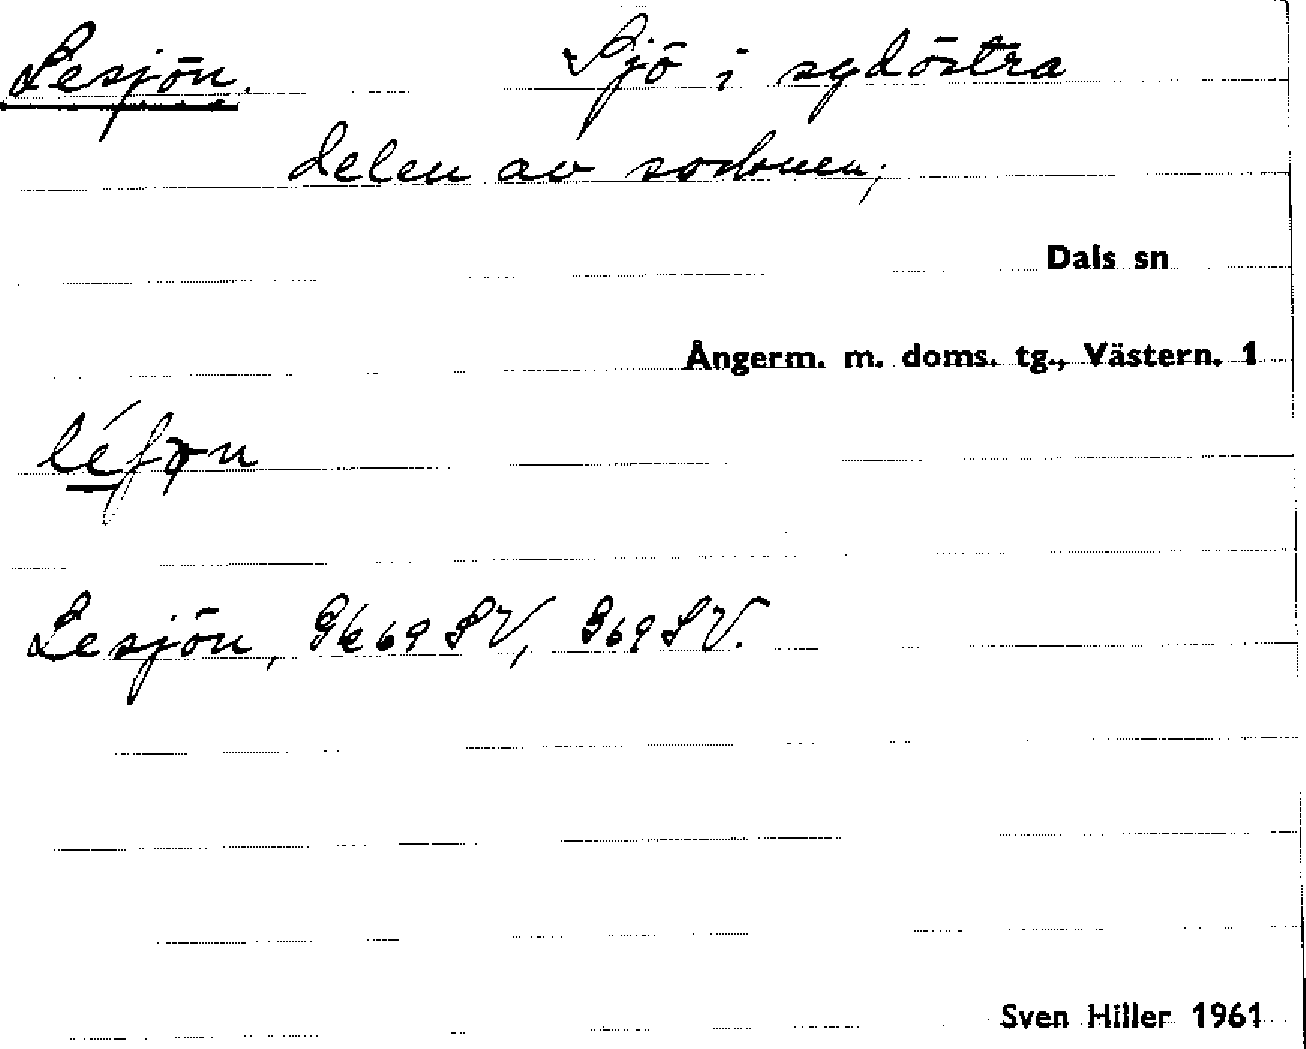 Lesjön. Sjö i sydöstra
delen av socknen;
Dals sn
Ångerm. m. doms. tg., Västern. 1
Lesjön, Gk 69 SV, G69 SV.
Sven Hiller 1961